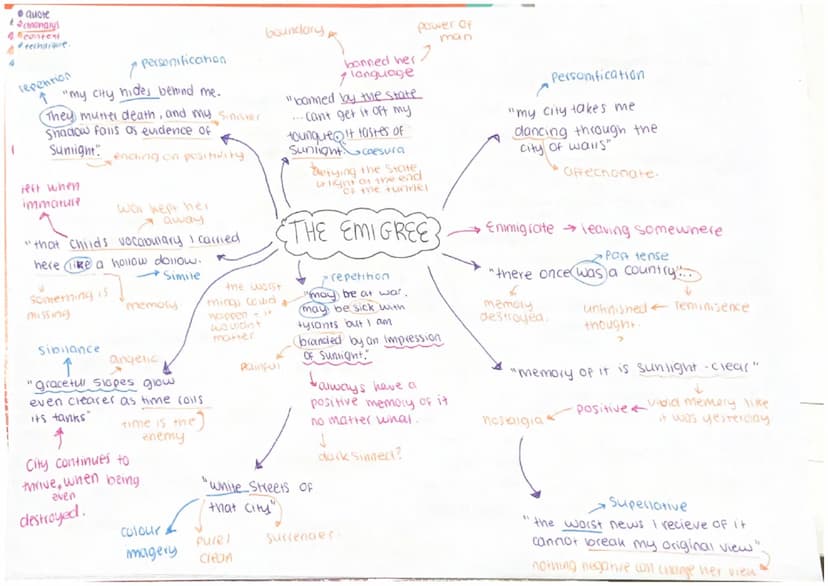 quote
context
technique
boundary
power of
man
banned her
language
repetition
personification
"my city hides behind me.
They mutter death, and my
shadow falls as evidence of
sunlight".
sinister
ending on positivity
"banned by the state
...cant get it off my
tounge, it tastes of
sunlight.
caesura
defying the state
light at the end
of the tunnel
personification
"my city takes me
dancing through the
city of walls"
affectionate.
left when
immature
war kept her
away
"that childs vocabulary I carried
here like a hollow dollow.
simile
something is
missing
memory
THE EMIGREE
Emmigrate → leaving somewhere
Past tense
"there once was a country"...
memory
destroyed.
unfinished
thought.
?
reminisence
the worst
things could
happen + it
wouldnt
matter
repetition
"may be at war.
may be sick with
tyrants but I am
branded by an impression
of sunlight."
painful
always have a
positive memory of it
no matter what.
dark sinned?
sibilance
angelic
"graceful slopes glow
even clearer as time rolls
its tanks"
time is the
enemy
City continues to
thrive, when being
even
destroyed.
"memory of it is sunlight-clear"
nostalgia
positive
vivid memory like
it was yesterday
"white streets of
that city"
colour
imagery
pure/
clean
surrender.
superlative
"the worst news I recieve of it
cannot break my original view"
nothing negative will change her view